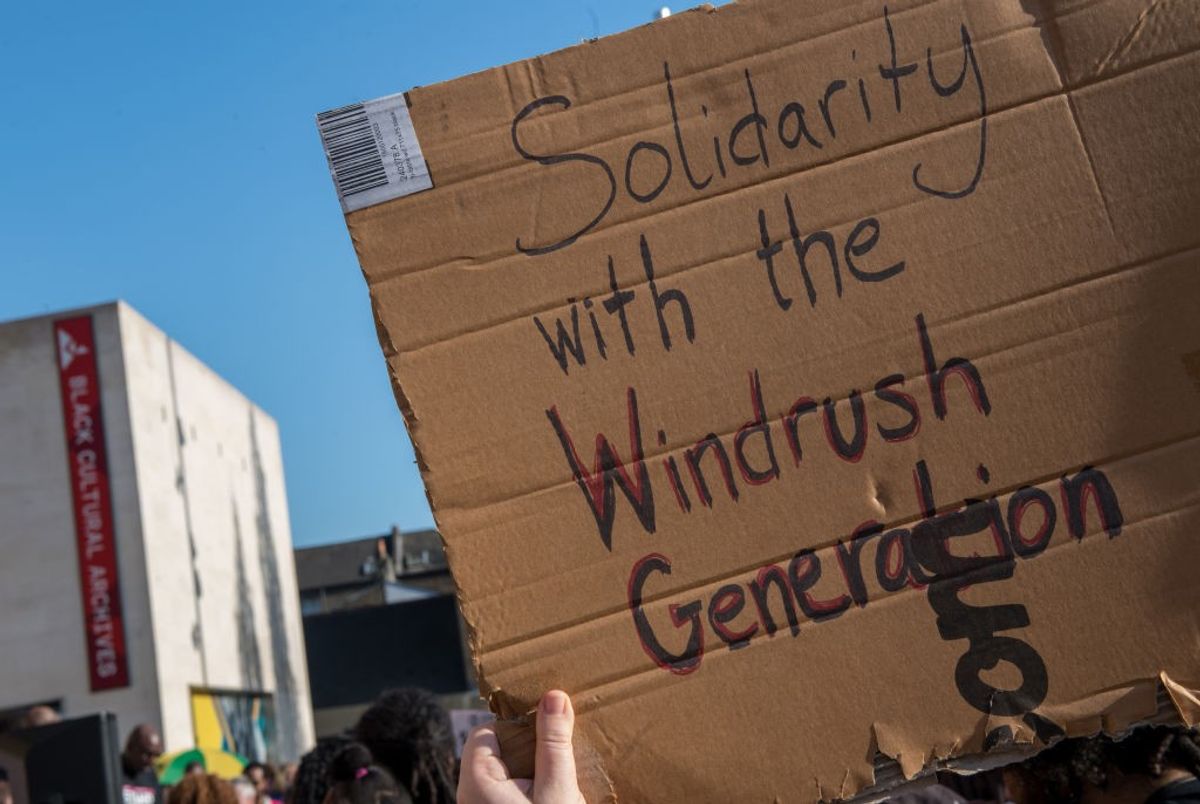 Solidarity
with the
Windrush
Generation
BLACK CULTURAL ARCHIVES